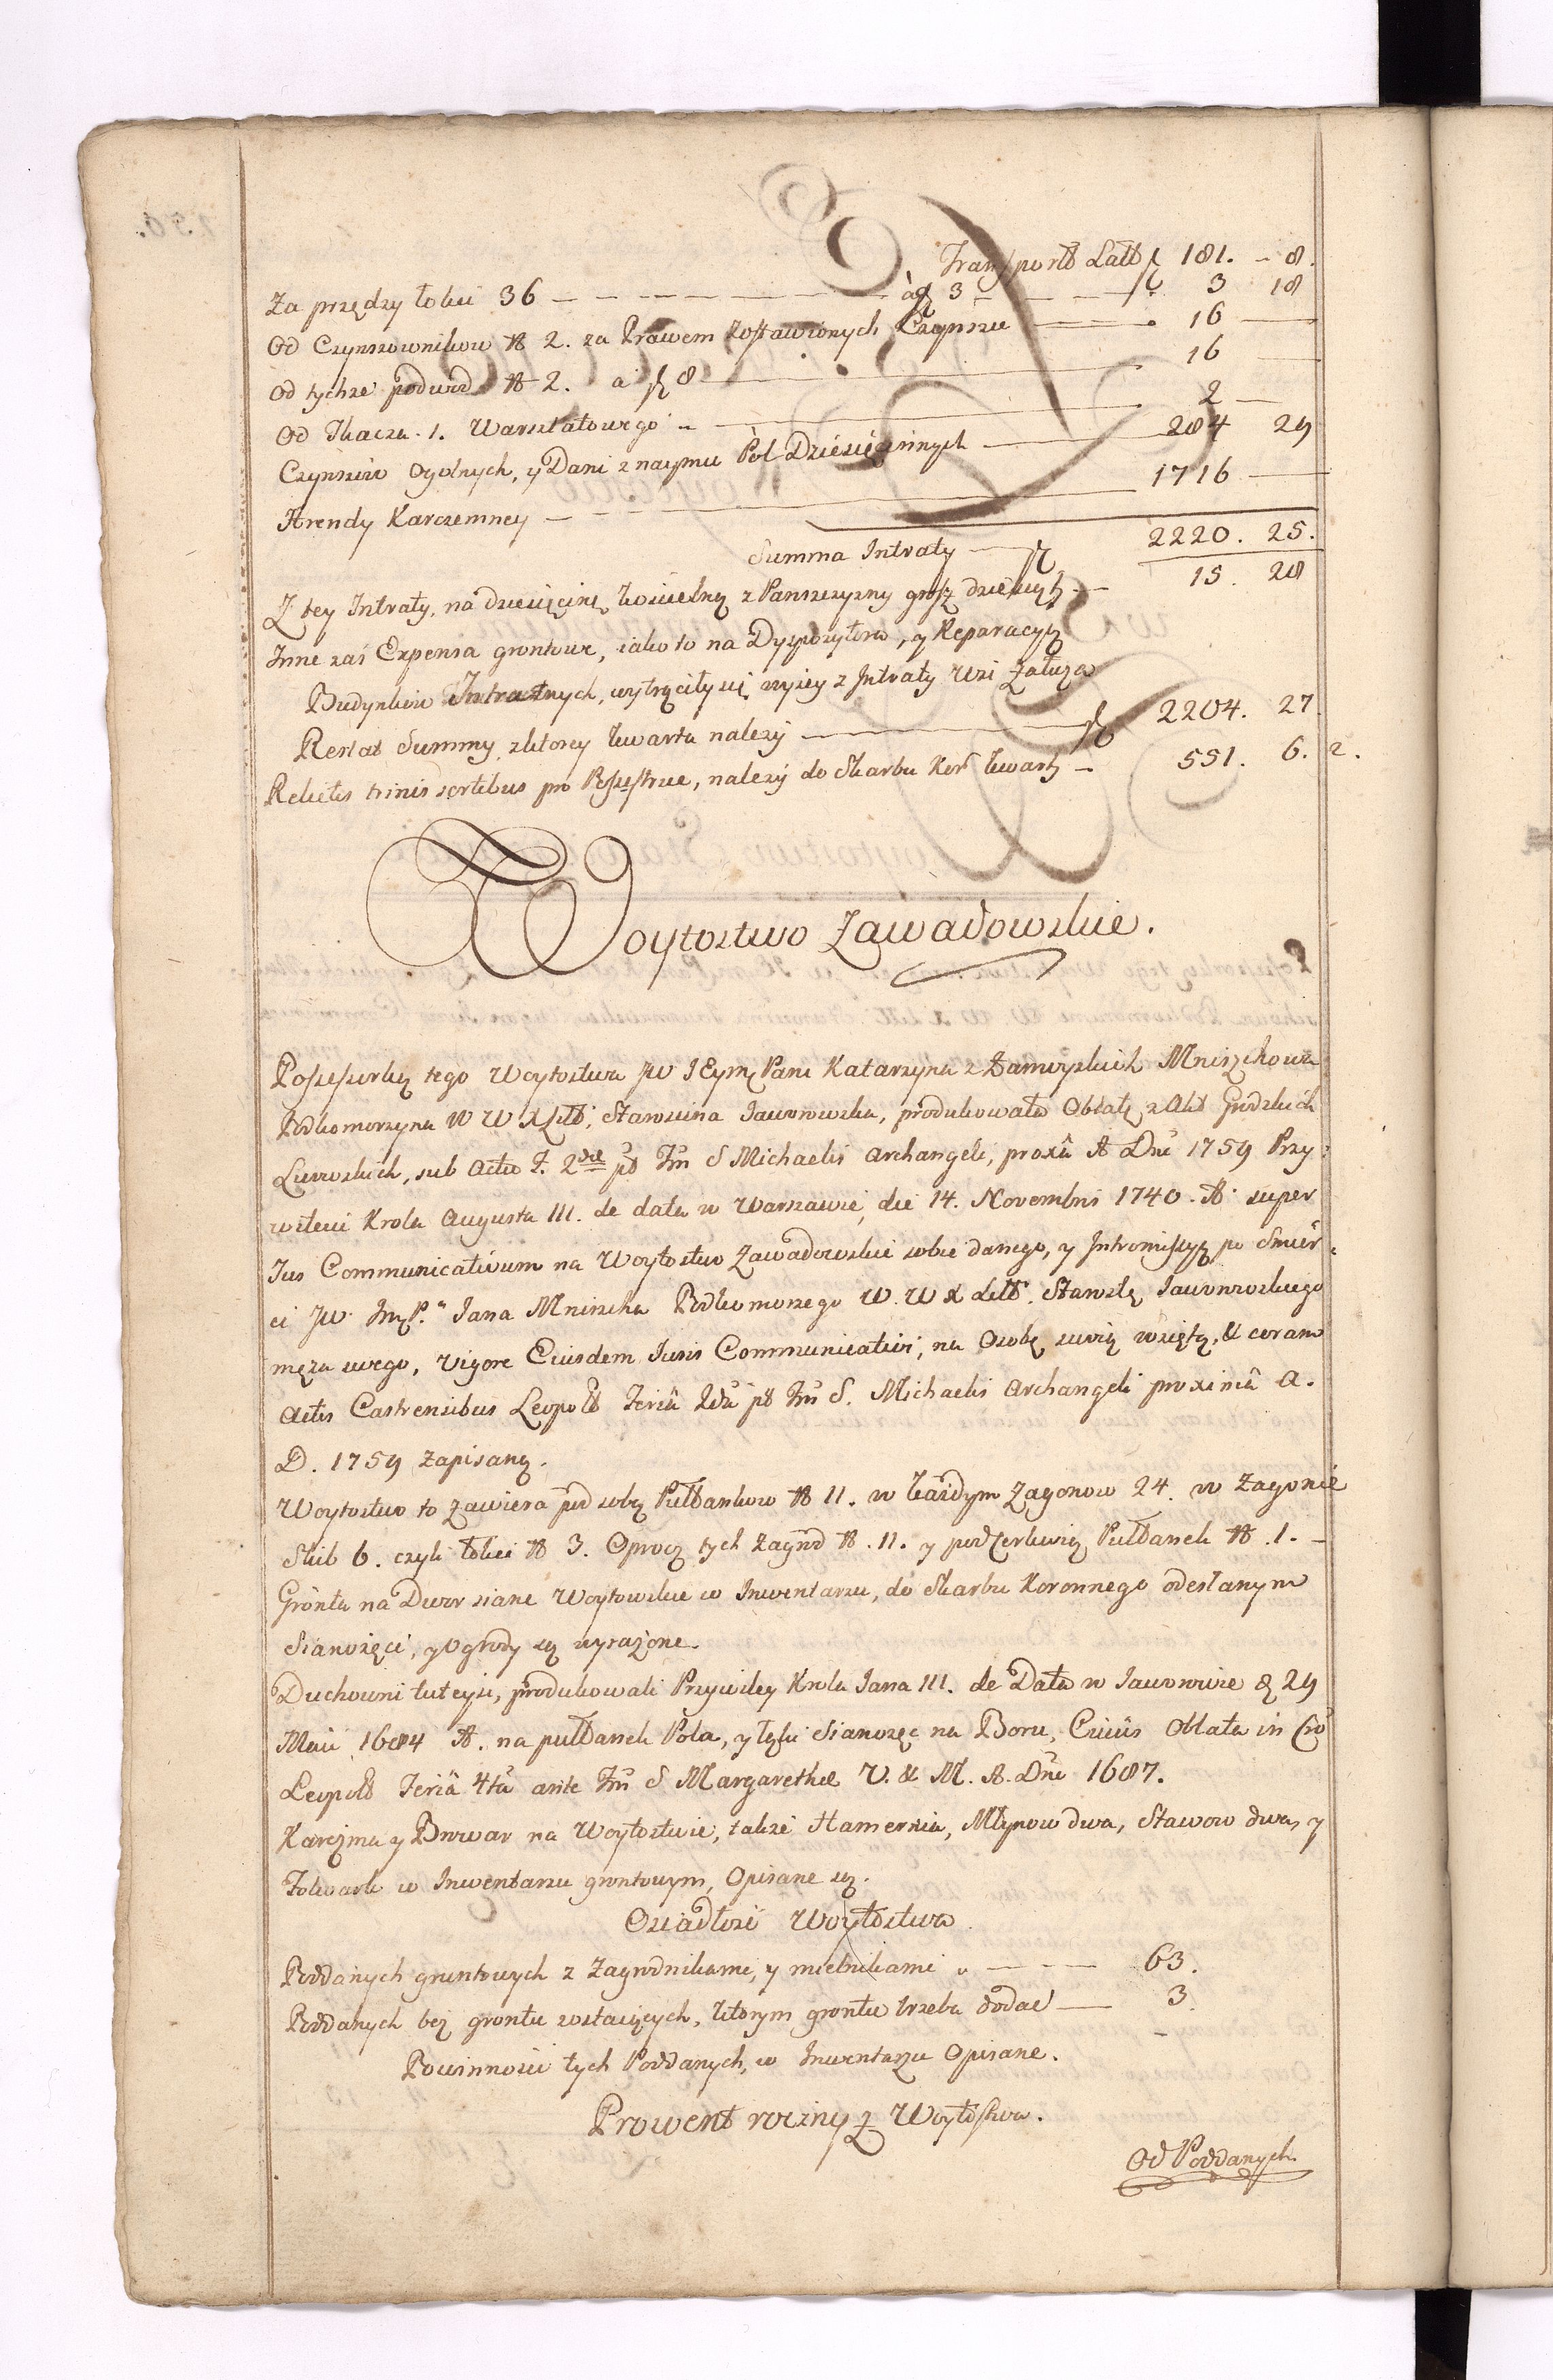 Transport Latt zł 181. - 8.
Za przędzy łokci 36 — — — — — — — a gr 3 — — — zł. 3 18
Od Czynszownikow N 2. za Prawem zostawionych Czynszu — 16 —
Od tychze podwod N 2. a zł 8 — 16 —
Od Tkacza 1. Warsztatowego — 2 —
Czynszow Ogolnych, y Dani z naymu Pol Dziesięcinnych — 284 29
Arendy Karczemney — 1716 —
Summa Intraty — zł 2220. 25.
Z tey Intraty, na dziesięcinę kościelną z Panszczyzny grosz dziesiąty — 15. 28
Inne zaś Expensa grontowe, iako to na Dyspozytora, y Reparacyą
Budynkow Intratnych, wytrąciły się wyżey z Intraty Wsi Załuża
Restat Summy z ktorey kwarta należy — zł 2204. 27.
Relictis trinis sortibus pro Possessore, należy do Skarbu Kor kwarty — 551. 6. 2.
Woytostwo Zawadowskie.
Possessorką tego Woytostwa JW JEym Pani Katarzyna z Zamoyskich Mniszchowa
Podkomorzyna W W X Litt; Starościna Jaworowska, produkowała Oblatę z Akt Grodzkich
Lwowskich, sub Actu F. 2dae pt Fm S Michaelis Archangeli, proxa A Dni 1759 Przy:
wileiu Krola Augusta III. de data w Warszawie, die 14. Novembris 1740. A. super
Jus Communicativum na Woytostwo Zawadowskie sobie danego, y Intromissyą po Smier:
ci JW Jmp. Jana Mniszcha Podkomorzego W. W X Litt. Starosty Jaworowskiego
męża swego, vigore Eiusdem Juris Communicativi, na Osobę swoią wziętą, & coram
Actis Castrensibus Leopold Feria 2da pt Fm S. Michaelis Archangeli proximâ A.
D. 1759 zapisaną.
Woytostwo to zawiera pod sobą Pułłankow N 11. w każdym Zagonow 24. w Zagonie
Skib 6. czyli łokci N 3. Oprocz tych Zagrod N. 11. y pod Cerkwią Pułłanek N. 1. -
Gronta na Dwor siane Woytowskie w Inwentarzu, do Skarbu Koronnego odesłanym
Sianożęci, y Ogrody są wyrażone.
Duchowni tuteysi, produkowali Przywiley Krola Jana III. de Data w Jaworowie d 29
Maii 1684 A. na pułłanek Pola, y łąkę Sianożęć na Boru, Cuius Oblata in Cro
Leopold Feriâ 4ta ante Fm S Margarethae V. & M. A. Dni 1687.
Karczma y Browar na Woytostwie, także Hamernia, Młynow dwa, Stawow dwa, y
Folwark w Inwentarzu grontowym, Opisane są.
Osiadłość Woytostwa
Poddanych gruntowych z Zagrodnikami, y mielnikami — — — 63.
Poddanych bez grontu zostaiących, ktorym grontu trzeba dodać — 3.
Powinności tych Poddanych, w Inwentarzu Opisane.
Prowent roczny z Woytostwa.
Od Poddanych